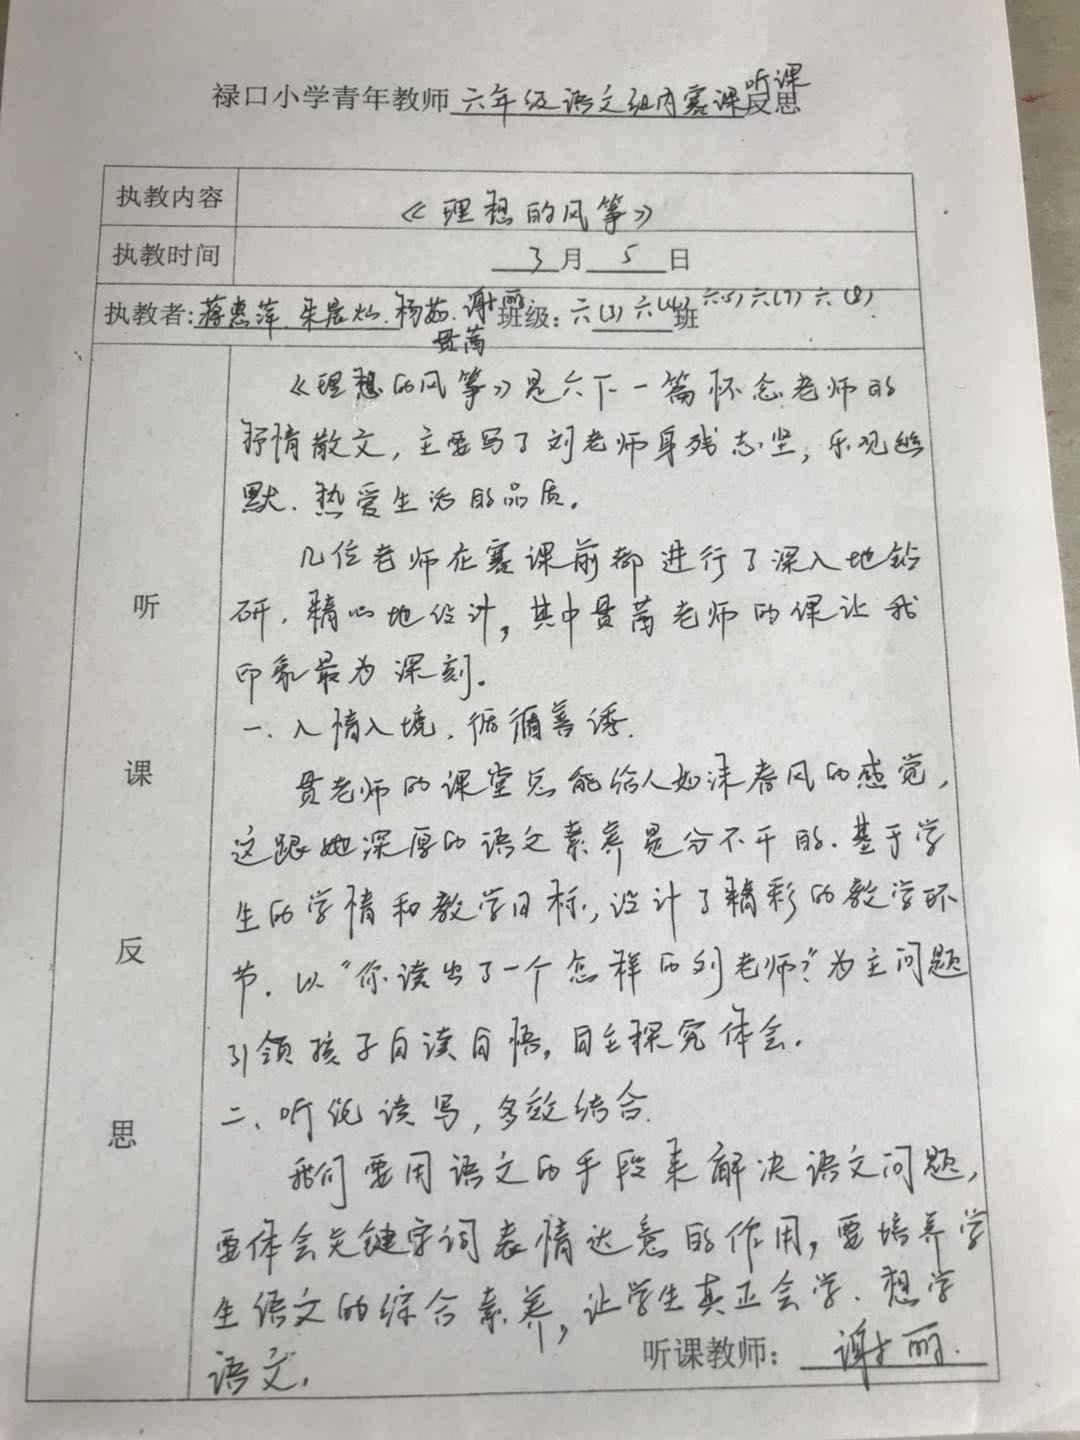 禄口小学青年教师 六年级语文组内赛课听课反思
执教内容 《理想的风筝》
执教时间 3月5日
执教者:蒋惠萍、朱晨灿、杨茹、谢丽 班级:六(3)六(4)六(5)六(7)六(8)班
贯茜
听课反思
《理想的风筝》是六下一篇怀念老师的
抒情散文,主要写了刘老师身残志坚,乐观幽
默、热爱生活的品质。
几位老师在赛课前都进行了深入地钻
研,精心地设计,其中贯茜老师的课让我
印象最为深刻。
一、入情入境,循循善诱.
贯老师的课堂总能给人如沐春风的感觉,
这跟她深厚的语文素养是分不开的.基于学
生的学情和教学目标,设计了精彩的教学环
节.以“你读出了一个怎样的刘老师?”为主问题
引领孩子自读自悟,自主探究体会.
二、听说读写,多效结合.
我们要用语文的手段来解决语文问题,
要体会关键字词表情达意的作用,要培养学
生语文的综合素养,让学生真正会学、想学
语文.
听课教师: 谢丽.